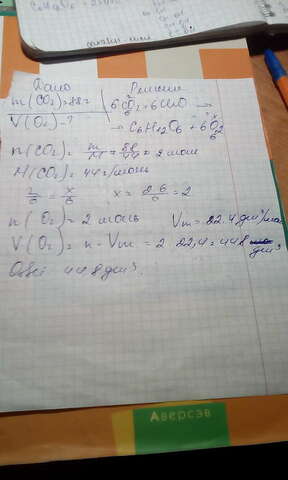 Дано Решение
m(CO₂)=88г 2 x
V(O₂)-? 6CO₂+6H₂O →
→ C₆H₁₂O₆ + 6O₂
6 6
n(CO₂)= m/M = 88/44 = 2 моль
M(CO₂)= 44 г/моль
2/6 = x/6 x = 2·6/6 = 2
n(O₂)= 2 моль Vm = 22.4 дм³/моль
V(O₂)= n · Vm = 2 22,4 = 44.8
дм³
Ответ 44.8 дм³.
Аверсэв